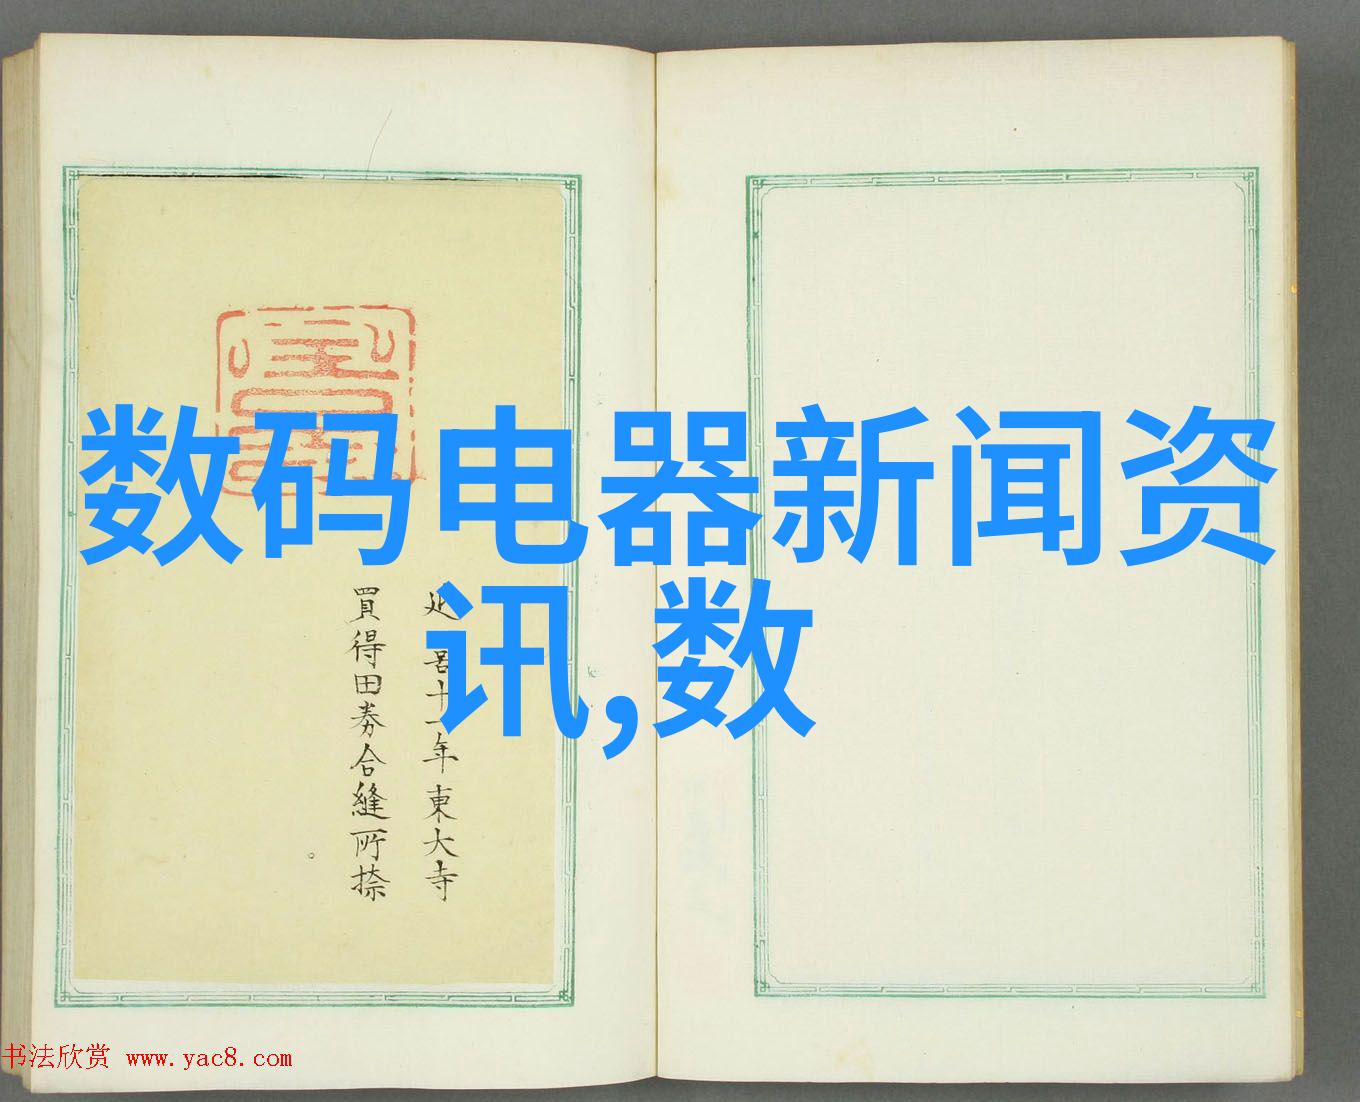 数码电器新闻资
讯,数
延喜十一年東大寺
買得田券合縫所捺
书法欣赏 www.yac8.com